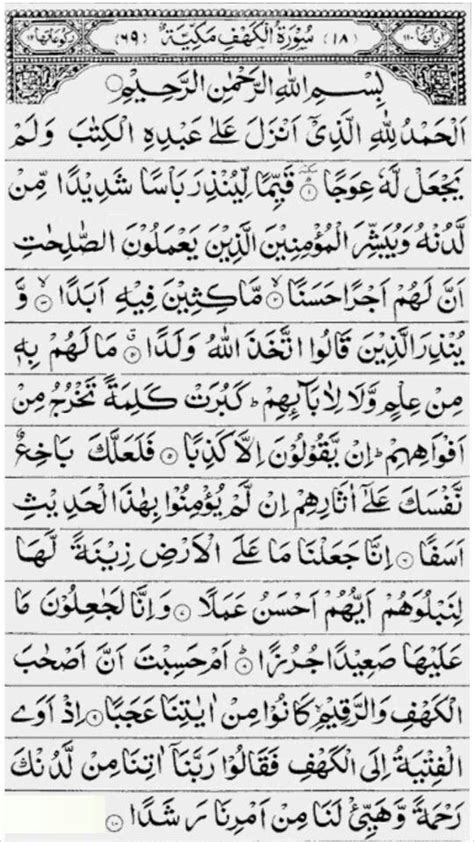 اٰيَاتُهَا ١١٠ (١٨) سُوْرَةُ الْكَهْفِ مَكِّيَّةٌ (٦٩) رُكُوْعَاتُهَا ١٢
بِسْمِ اللّٰهِ الرَّحْمٰنِ الرَّحِيْمِ
اَلْحَمْدُ لِلّٰهِ الَّذِيْۤ اَنْزَلَ عَلٰى عَبْدِهِ الْكِتٰبَ وَلَمْ
يَجْعَلْ لَّهٗ عِوَجًا ۝١ قَيِّمًا لِّيُنْذِرَ بَاْسًا شَدِيْدًا مِّنْ
لَّدُنْهُ وَيُبَشِّرَ الْمُؤْمِنِيْنَ الَّذِيْنَ يَعْمَلُوْنَ الصّٰلِحٰتِ
اَنَّ لَهُمْ اَجْرًا حَسَنًا ۝٢ مَّاكِثِيْنَ فِيْهِ اَبَدًا ۝٣ وَّ
يُنْذِرَ الَّذِيْنَ قَالُوا اتَّخَذَ اللّٰهُ وَلَدًا ۝٤ مَا لَهُمْ بِهٖ
مِنْ عِلْمٍ وَّلَا لِاٰبَآئِهِمْ ؕ كَبُرَتْ كَلِمَةً تَخْرُجُ مِنْ
اَفْوَاهِهِمْ ؕ اِنْ يَّقُوْلُوْنَ اِلَّا كَذِبًا ۝٥ فَلَعَلَّكَ بَاخِعٌ
نَّفْسَكَ عَلٰۤى اٰثَارِهِمْ اِنْ لَّمْ يُؤْمِنُوْا بِهٰذَا الْحَدِيْثِ
اَسَفًا ۝٦ اِنَّا جَعَلْنَا مَا عَلَى الْاَرْضِ زِيْنَةً لَّهَا
لِنَبْلُوَهُمْ اَيُّهُمْ اَحْسَنُ عَمَلًا ۝٧ وَاِنَّا لَجٰعِلُوْنَ مَا
عَلَيْهَا صَعِيْدًا جُرُزًا ۝٨ اَمْ حَسِبْتَ اَنَّ اَصْحٰبَ
الْكَهْفِ وَالرَّقِيْمِ كَانُوْا مِنْ اٰيٰتِنَا عَجَبًا ۝٩ اِذْ اَوَى
الْفِتْيَةُ اِلَى الْكَهْفِ فَقَالُوْا رَبَّنَاۤ اٰتِنَا مِنْ لَّدُنْكَ
رَحْمَةً وَّهَيِّئْ لَنَا مِنْ اَمْرِنَا رَشَدًا ۝١٠